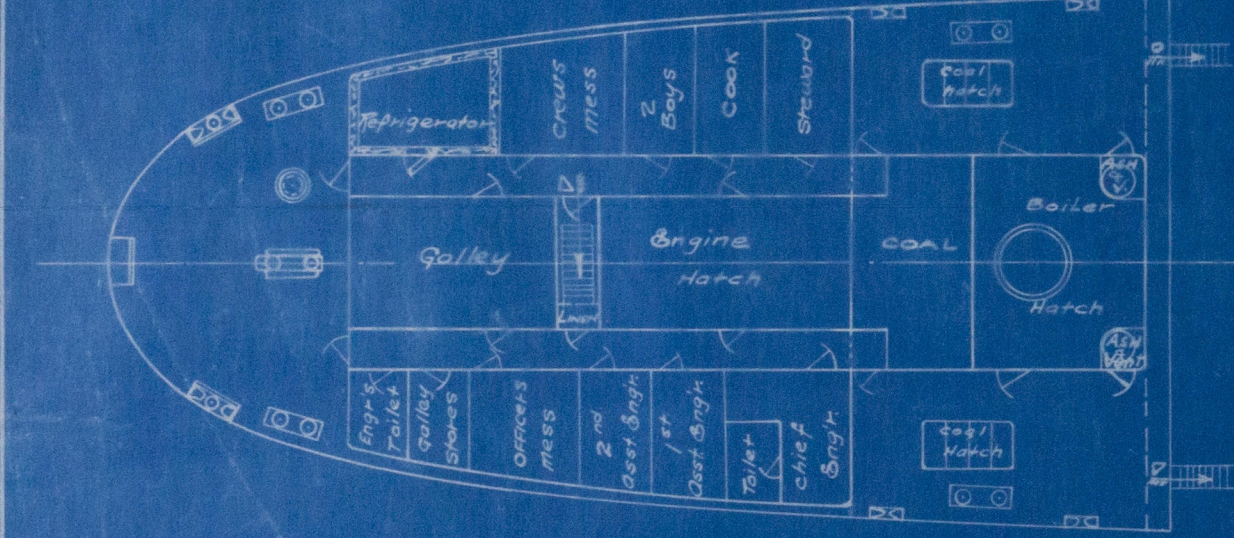 Refrigerator
Crews
mess
2
Boys
Cook
Steward
Coal
hatch
Galley
Linen
Engine
Hatch
COAL
Boiler
Hatch
ASH
&
V.
ASH
&
Vent
Engr's
Toilet
Galley
Stores
Officers
mess
2nd
Asst. Engr.
1st
Asst. Engr.
Toilet
Chief
Engr.
Coal
Hatch